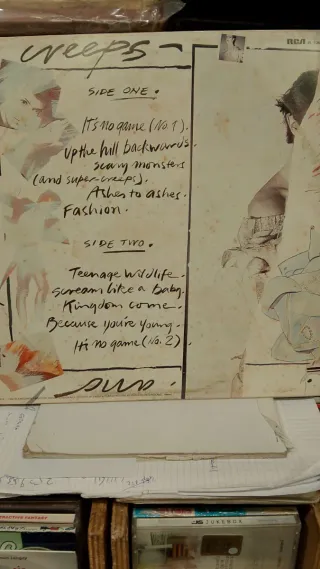 creeps
RCA
SIDE ONE.
It's no game (No. 1).
Up the hill backwards.
scary monsters
(and super creeps).
Ashes to ashes.
Fashion.
SIDE TWO.
Teenage Wildlife.
Scream like a Baby.
Kingdom come.
Because you're young.
It's no game (No. 2)